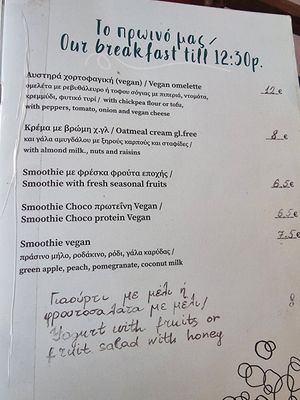 Το πρωινό μας /
Our breakfast till 12:30p.
Αυστηρά χορτοφαγική (vegan) / Vegan omelette
ομελέτα με ρεβυθάλευρο ή τοφου σόγιας με πιπεριά, ντομάτα,
κρεμμύδι, φυτικό τυρί / with chickpea flour or tofu,
with peppers, tomato, onion and vegan cheese
12 €
Κρέμα με βρώμη χ.γλ / Oatmeal cream gl.free
και γάλα αμυγδάλου με ξηρούς καρπούς και σταφίδες /
with almond milk., nuts and raisins
8 €
Smoothie με φρέσκα φρούτα εποχής /
Smoothie with fresh seasonal fruits
6.5€
Smoothie Choco πρωτεΐνη Vegan /
Smoothie Choco protein Vegan
6.5€
7.5€
Smoothie vegan
πράσινο μήλο, ροδάκινο, ρόδι, γάλα καρύδας /
green apple, peach, pomegranate, coconut milk
Γιαούρτι με μέλι ή
φρουτοσαλάτα με μέλι /
Yogurt with fruits or
fruit salad with honey
8